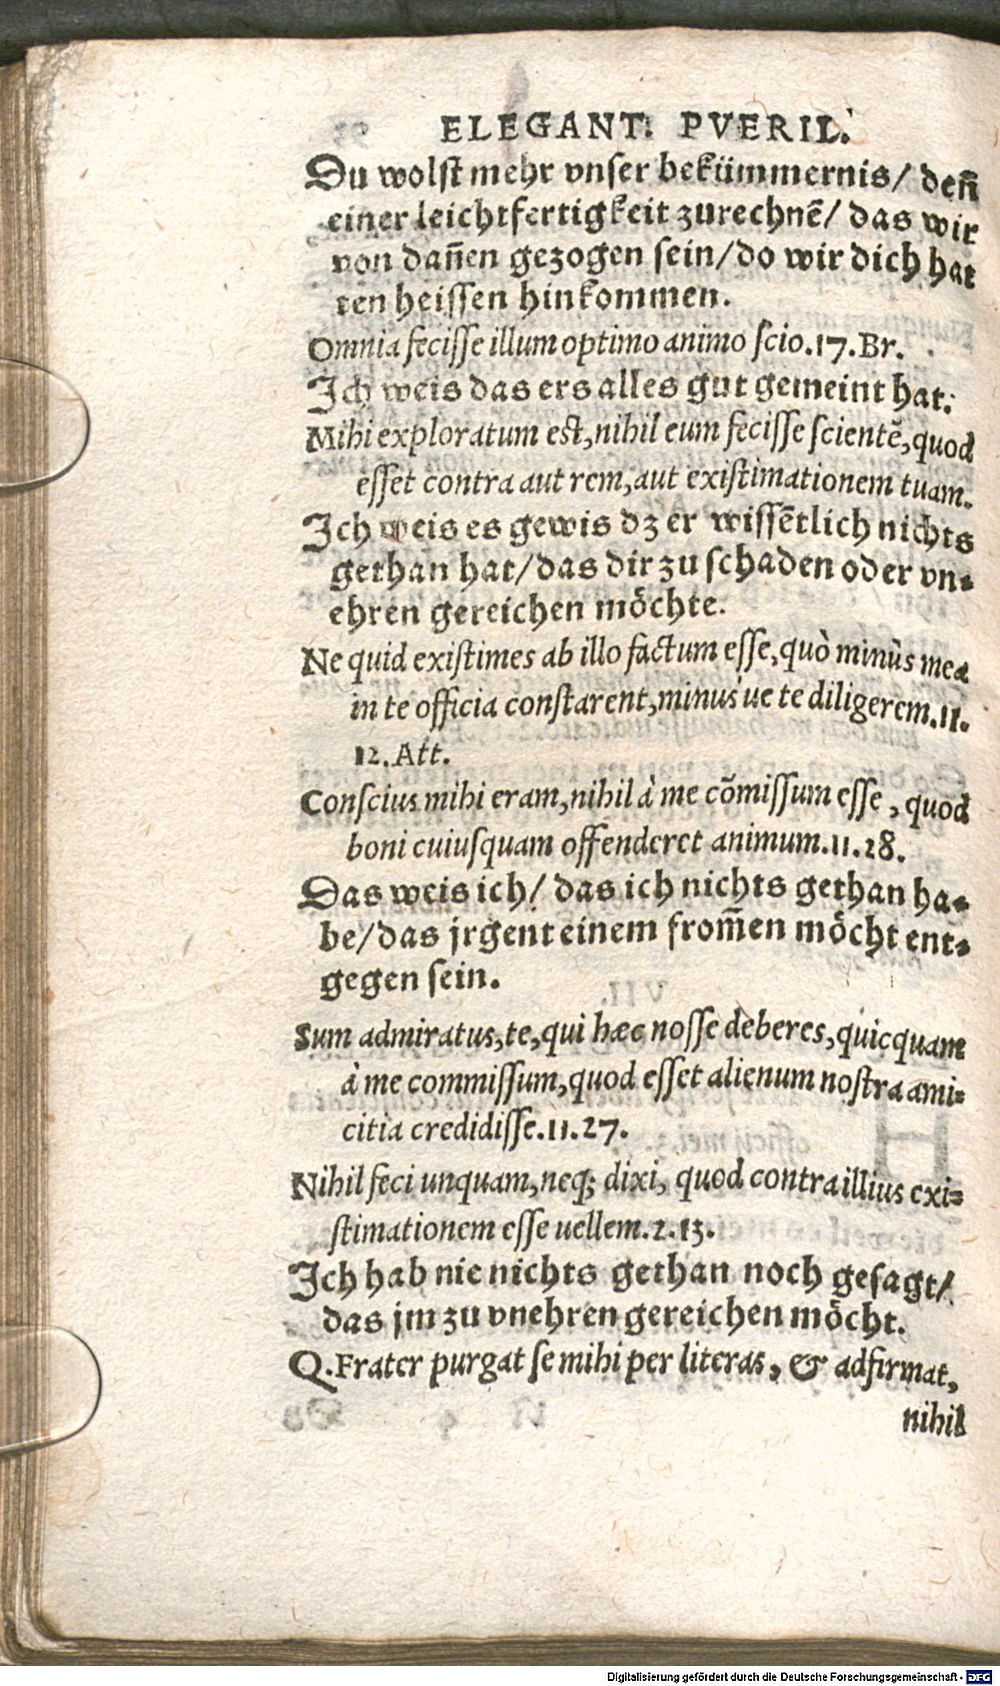 ELEGANT. PVERIL.
Du wolst mehr vnser bekümmernis/ deñ
einer leichtfertigkeit zurechnẽ/ das wir
von dañen gezogen sein/do wir dich hat
ten heissen hinkommen.
Omnia fecisse illum optimo animo scio.17.Br.
Ich weis das ers alles gut gemeint hat.
Mihi exploratum est,nihil eum fecisse scientẽ,quod
esset contra aut rem,aut existimationem tuam.
Ich weis es gewis dz er wissẽtlich nichts
gethan hat/das dir zu schaden oder vn⸗
ehren gereichen möchte.
Ne quid existimes ab illo factum esse,quò minùs mea
in te officia constarent,minus'ue te diligerem.11.
12.Att.
Conscius mihi eram,nihil à me cõmissum esse , quod
boni cuiusquam offenderet animum.11.28.
Das weis ich/ das ich nichts gethan ha⸗
be/das jrgent einem from̃en möcht ent⸗
gegen sein.
Sum admiratus,te,qui hæc nosse deberes,quicquam
à me commissum,quod esset alienum nostra ami⸗
citia credidisse.11.27.
Nihil feci unquam,neq; dixi, quod contra illius exi⸗
stimationem esse uellem.2.13.
Ich hab nie nichts gethan noch gesagt/
das jm zu vnehren gereichen möcht.
Q.Frater purgat se mihi per literas, & adfirmat,
nihil
Digitalisierung gefördert durch die Deutsche Forschungsgemeinschaft - DFG